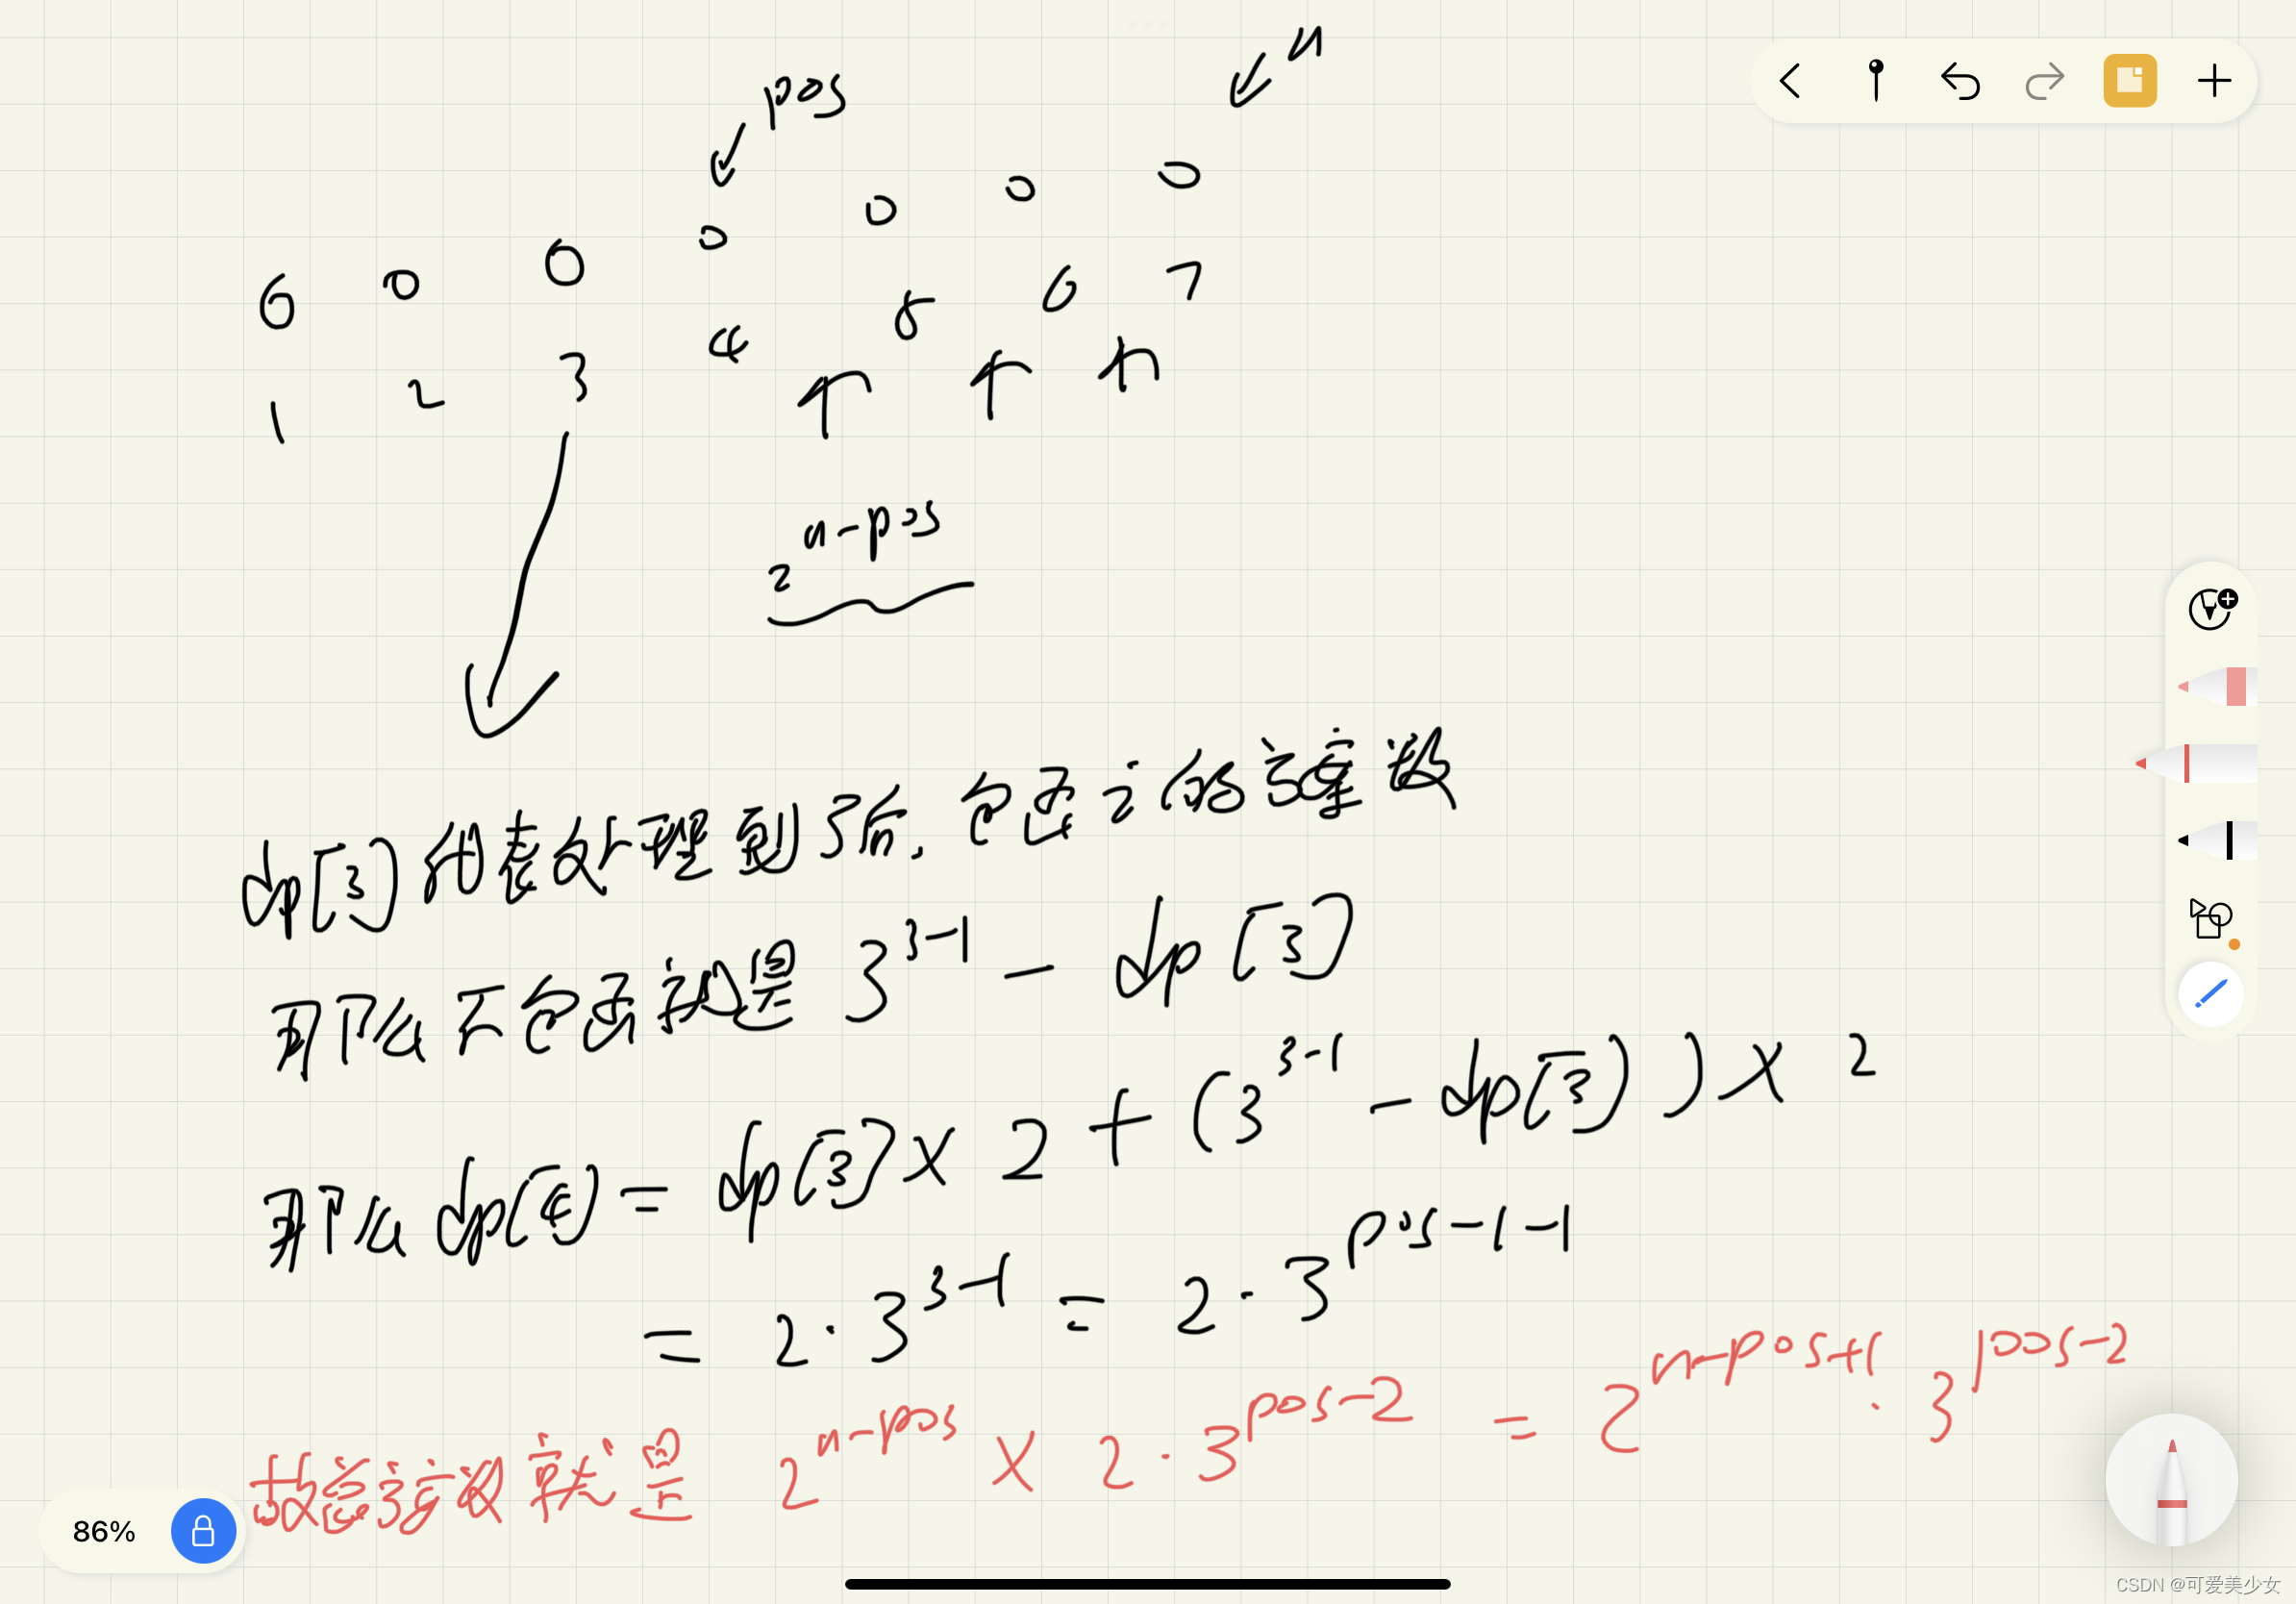 n
pos
0 0 0 0 0 0 0
1 2 3 4 5 6 7
2^{n-pos}
dp[3]代表处理到3后,包含它的方案数
那么不包含就是 3^{3-1} - dp[3]
那么 dp[4] = dp[3] × 2 + (3^{3-1} - dp[3]) × 2
= 2·3^{3-1} = 2·3^{pos-1-1}
故总方案数就是 2^{n-pos} × 2·3^{pos-2} = 2^{n-pos+1}·3^{pos-2}
86%
CSDN @可爱美少女